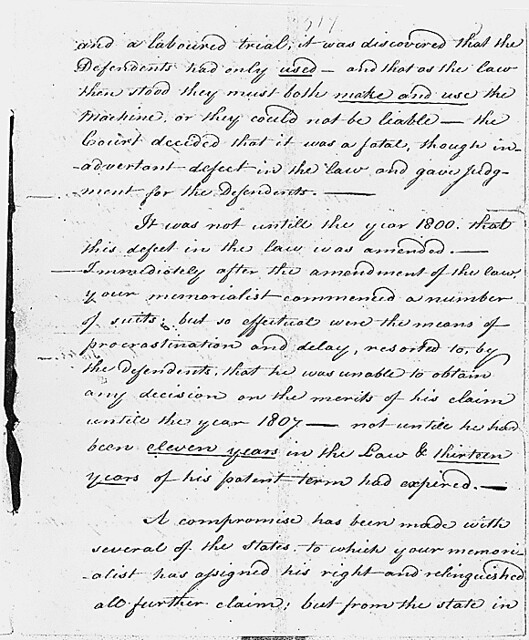 and a laboured trial, it was discovered that the
Defendents had only used — and that as the law
then stood they must both make and use the
Machine, or they could not be liable — the
Court decided that it was a fatal, though in-
-advertant defect in the law and gave judg-
-ment for the Defendents. —
It was not untill the year 1800. that
this defect in the law was amended. —
Immediately after the amendment of the law,
your memorialist commenced a number
of suits; but so effectual were the means of
procrastination and delay, resorted to, by
the Defendents, that he was unable to obtain
any decision on the merits of his claim
untill the year 1807 — not untill he had
been eleven years in the Law & thirteen
years of his patent term had expired. —
A compromise has been made with
several of the states, to which your memori-
-alist has assigned his right and relinquished
all further claim; but from the state in